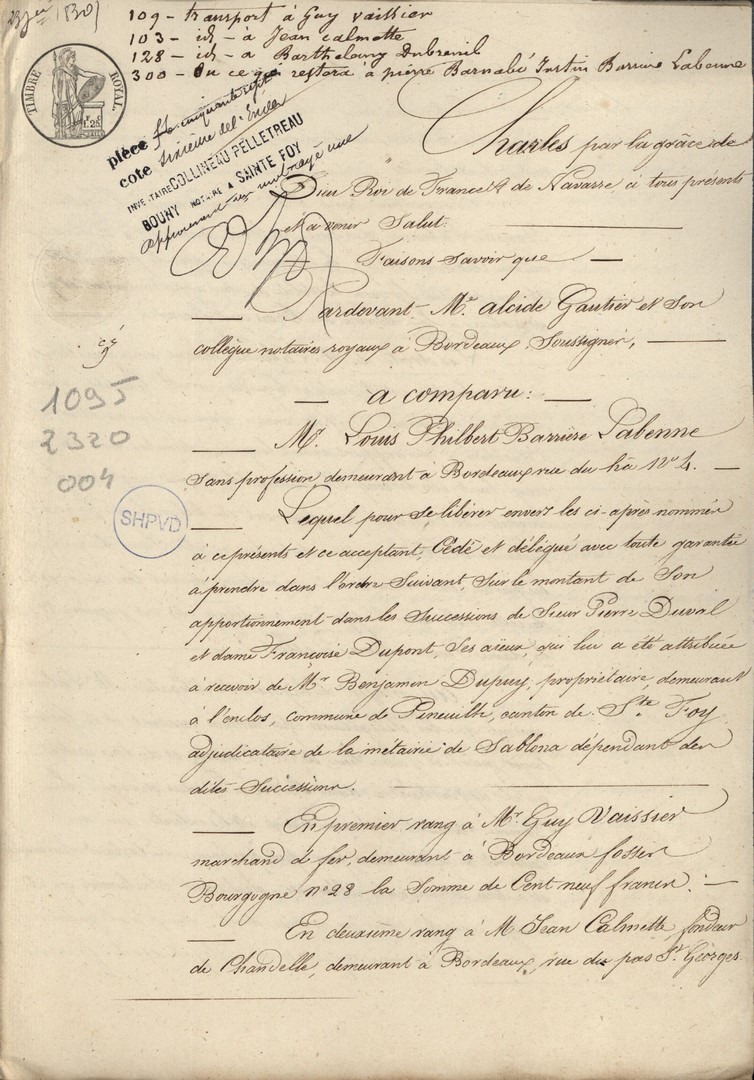 23 jer 1830
109 - transport à Guy Vaissier
103 - id - à Jean Calmette
128 - id - à Barthelemy Dubreuil
300 - Ou ce qui restera à pierre Barnabé Justin Barriere Labenne
TIMBRE ROYAL.
pièce cinquante sept
cote sixième del'
INVENTAIRE COLLINEAU PELLETREAU
BOUNY NOTAIRE A SAINTE FOY
Charles par la grâce de
Dieu Roi de France & de Navarre, à tous présents
et à venir Salut.
Faisons Savoir que
Pardevant Me. alcide Gautier et Son
collègue notaires royaux à Bordeaux Soussignés,
a comparu:
Mr. Louis Philbert Barrière Labenne
Sans profession, demeurant à Bordeaux rue du hâ no 4.
Lequel pour Se libérer envers les ci-après nommés
à ce présents et ce acceptant, Cédé et délégué avec toute garantie
à prendre dans l'ordre Suivant, Sur le montant de Son
apportionnement dans les Successions de Sieur Pierre Duval
et dame Francoise Dupont, Ses aïeux, qui lui a été attribuée
à recevoir de Mr Benjamin Dupuy, propriétaire, demeurant
à l'enclos, commune de Pineuilh, canton de Ste Foy
adjudicataire de la métairie de Sablona dépendant des
dites Successions.
En premier rang à Mr Guy Vaissier
marchand de fer, demeurant à Bordeaux fosses
Bourgogne no 28 la Somme de Cent neuf francs.
En deuxième rang à M Jean Calmette, fondeur
de Chandelle, demeurant à Bordeaux, rue du pas St Géorges
1095
2320
004
SHPVD